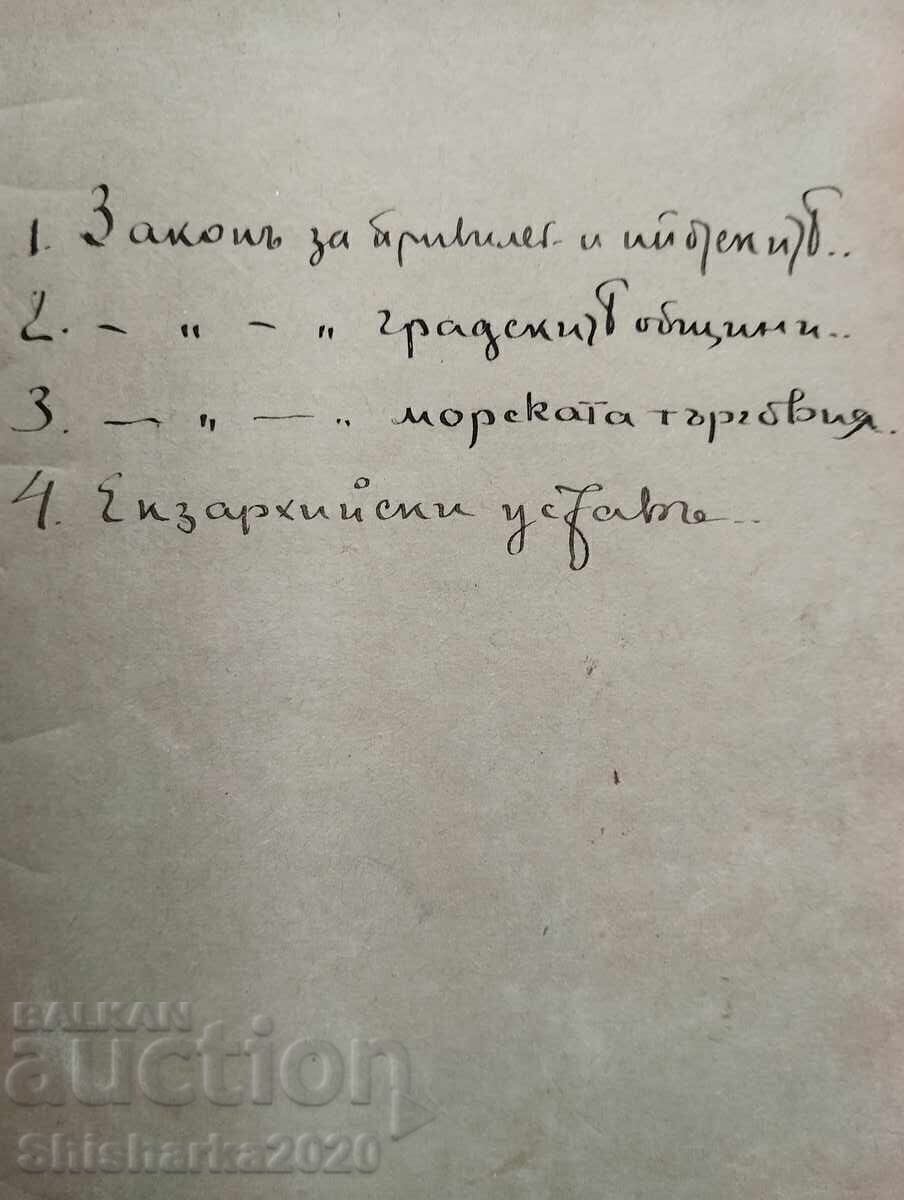 1. Законъ за привилег. и ипотекитѣ..
2. – „ – „ градскитѣ общини..
3. — „ — „ морската търговия.
4. Екзархийски уставъ..
BALKAN
auction
Shisharka2020